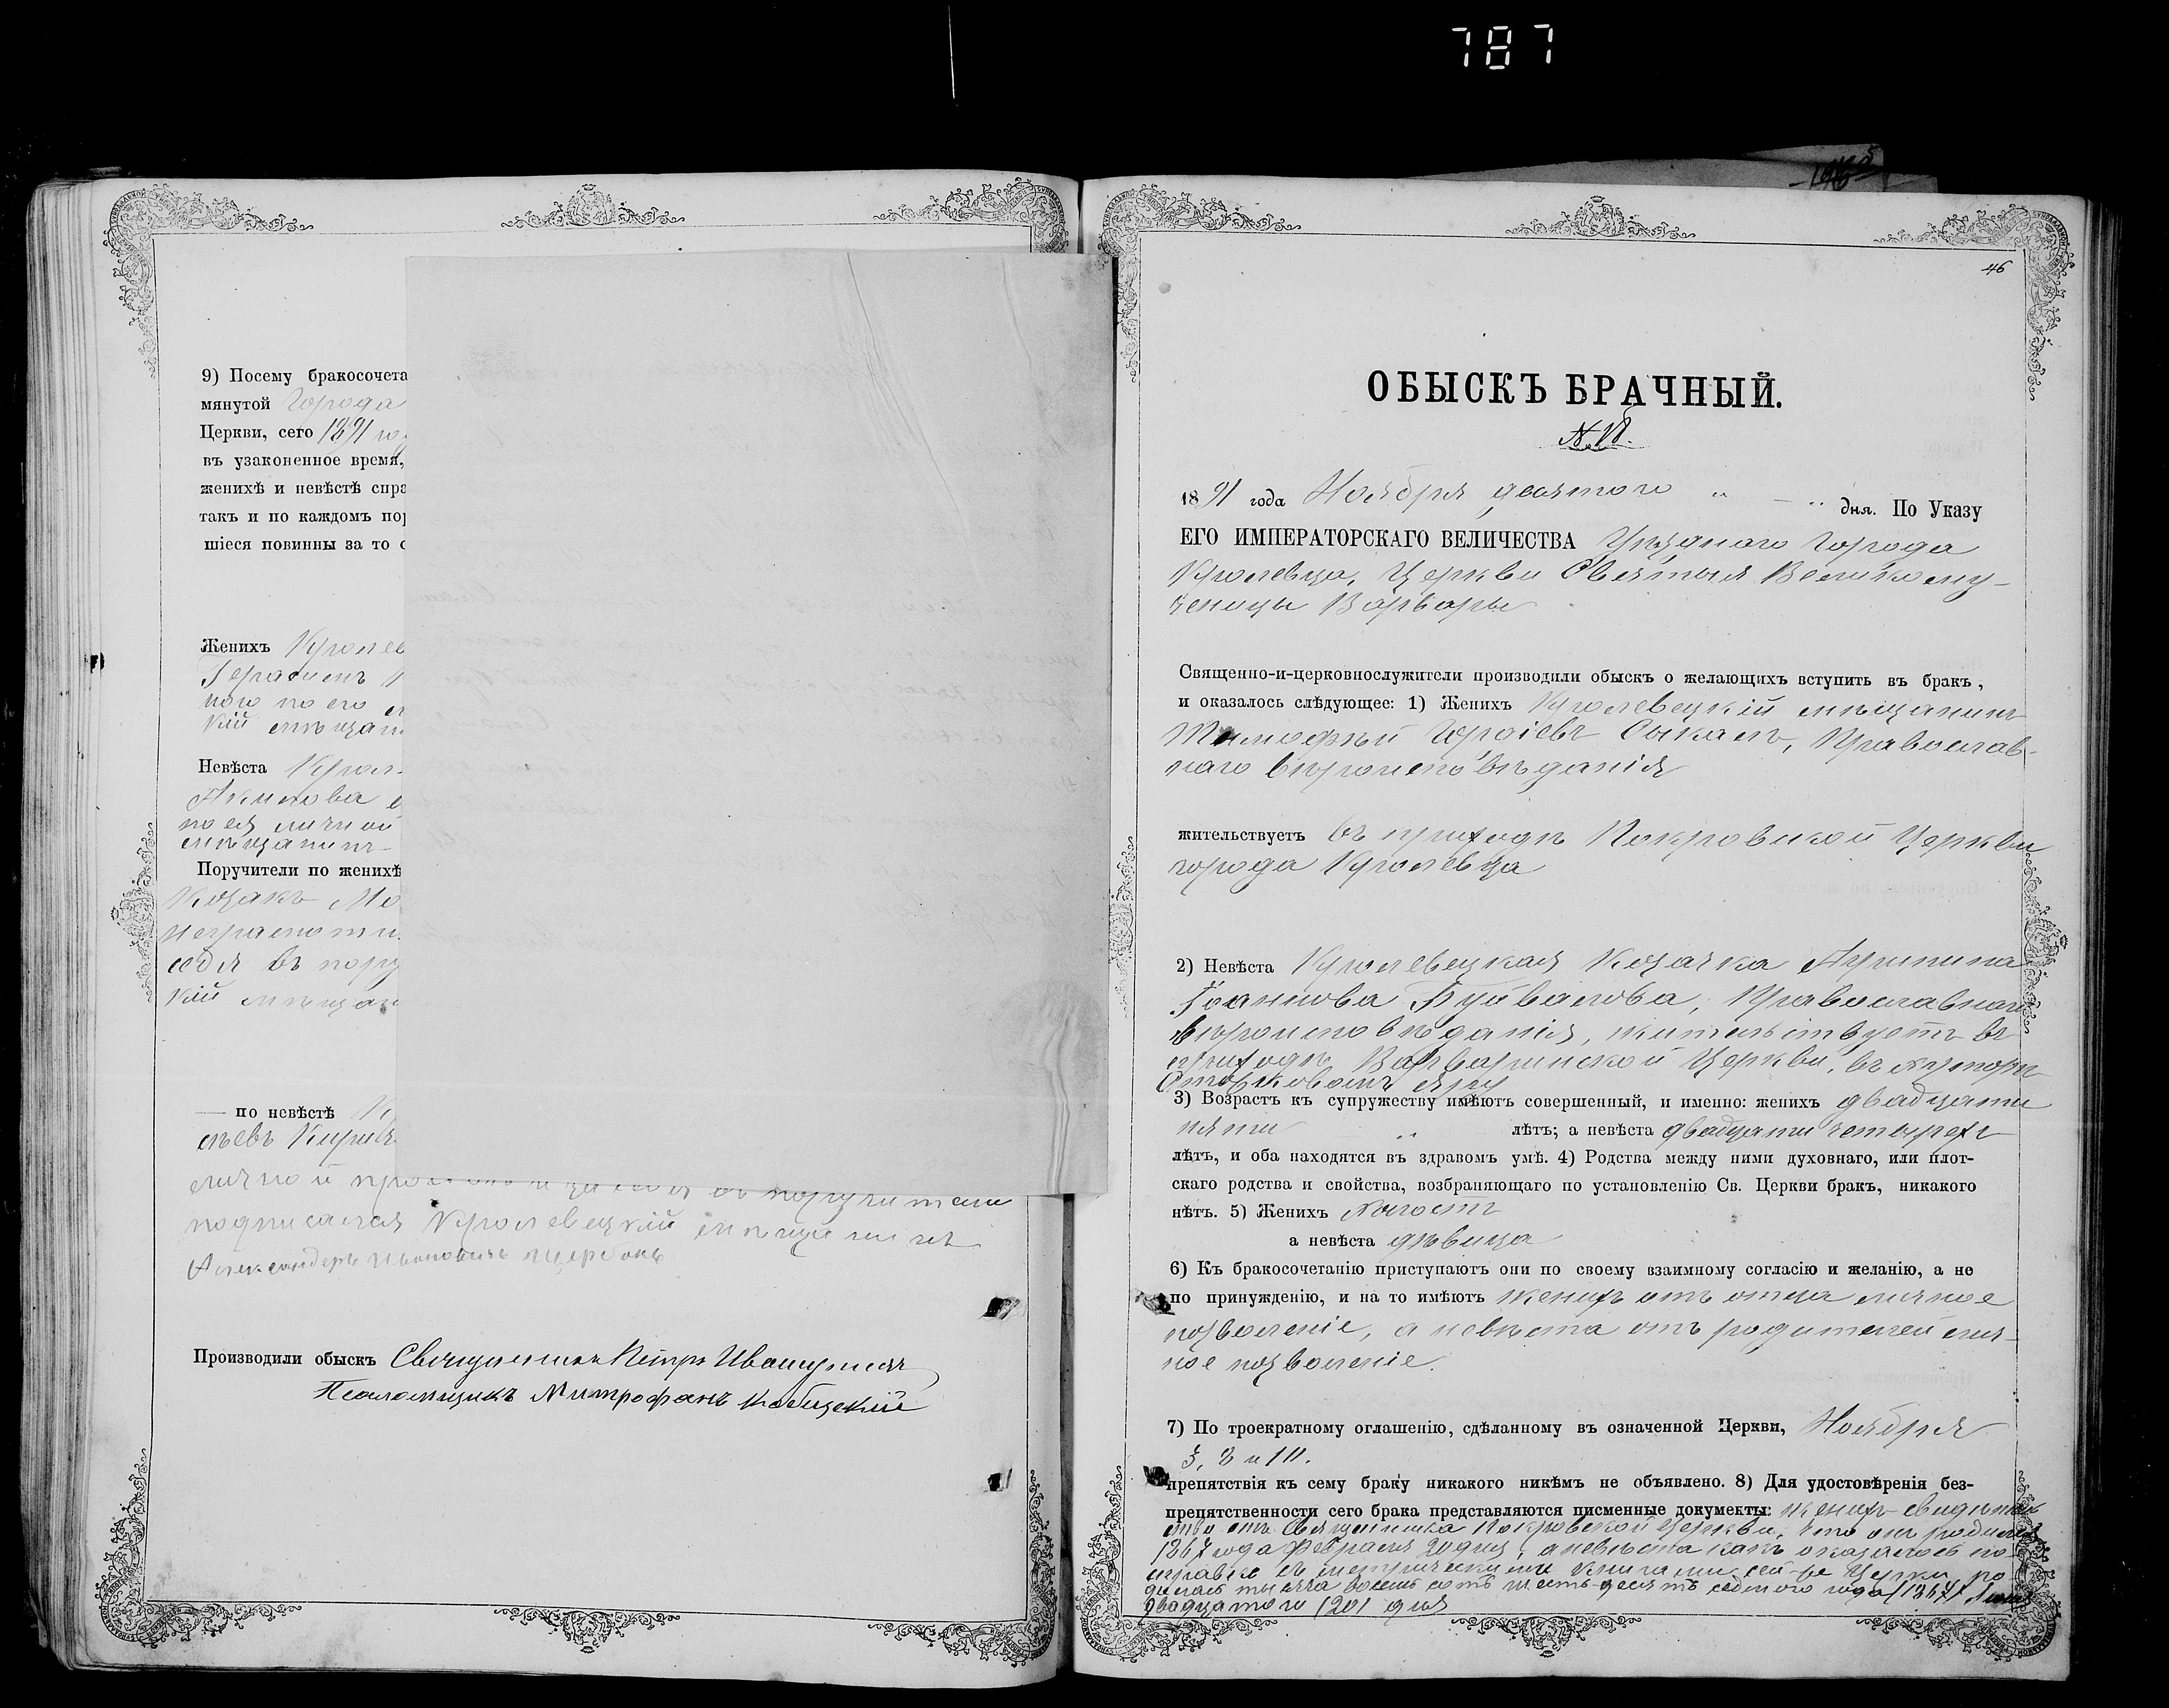 787
9) Посему бракосочета
мянутой Города
Церкви, сего 1891 го
въ узаконенное время,
женихѣ и невѣстѣ спра
такъ и по каждомъ пор
шіеся повинны за то с
Женихъ Кролев
Герасимъ
ного по его
кій мѣщан
Невѣста Крол
Акимова
по ея личной
мѣщанинъ
Поручители по женихѣ
Козакъ
неграмотн
себя въ пору
кій мѣщан
— по невѣстѣ
личной
подписался Кролевецкій мѣщанинъ
Александеръ Ивановичъ Щербакъ
Производили обыскъ Священникъ Петръ
Псаломщикъ Митрофанъ
46
ОБЫСКЪ БРАЧНЫЙ.
1891 года Ноября десятого " — " дня. По Указу
ЕГО ИМПЕРАТОРСКАГО ВЕЛИЧЕСТВА Уѣзднаго Города
Кролевца, Церкви Святыя Великому-
ченицы Варвары
Священно-и-церковнослужители производили обыскъ о желающихъ вступить въ бракъ,
и оказалось слѣдующее: 1) Женихъ Кролевецкій мѣщанинъ
Тимофѣй Сыкалъ, Православ-
наго вѣроисповѣданія
жительствуетъ въ приходѣ Покровской Церкви
города Кролевца
2) Невѣста Кролевецкая Козачка Агрипина
Іоаннова Буйвалова, Православнаго
вѣроисповѣданія, жительствуетъ въ
приходѣ Варваринской Церкви, въ хуторѣ
3) Возрастъ къ супружеству имѣютъ совершенный, и именно: женихъ двадцати
пяти " лѣтъ; а невѣста двадцати четырехъ
лѣтъ, и оба находятся въ здравомъ умѣ. 4) Родства между ними духовнаго, или плот-
скаго родства и свойства, возбраняющаго по установленію Св. Церкви бракъ, никакого
нѣтъ. 5) Женихъ холостъ
а невѣста дѣвица
6) Къ бракосочетанію приступаютъ они по своему взаимному согласію и желанію, а не
по принужденію, и на то имѣютъ женихъ отъ отца личное
позволеніе, а невѣста отъ родителей лич-
ное позволеніе.
7) По троекратному оглашенію, сдѣланному въ означенной Церкви, Ноября
3, 8 и 10.
препятствія къ сему браку никакого никѣмъ не объявлено. 8) Для удостовѣренія без-
препятственности сего брака представляются писменные документы: женихъ свидѣтель
ство отъ Священника Покровской Церкви, что онъ родился
1867 года Февраля 20 дня, а невѣста какъ оказалось по
справкѣ съ метрическими книгами сей-же Церкви ро
дилась тысяча восемь сотъ шесть-десятъ седмого года (1867)
двадцатого (20) дня